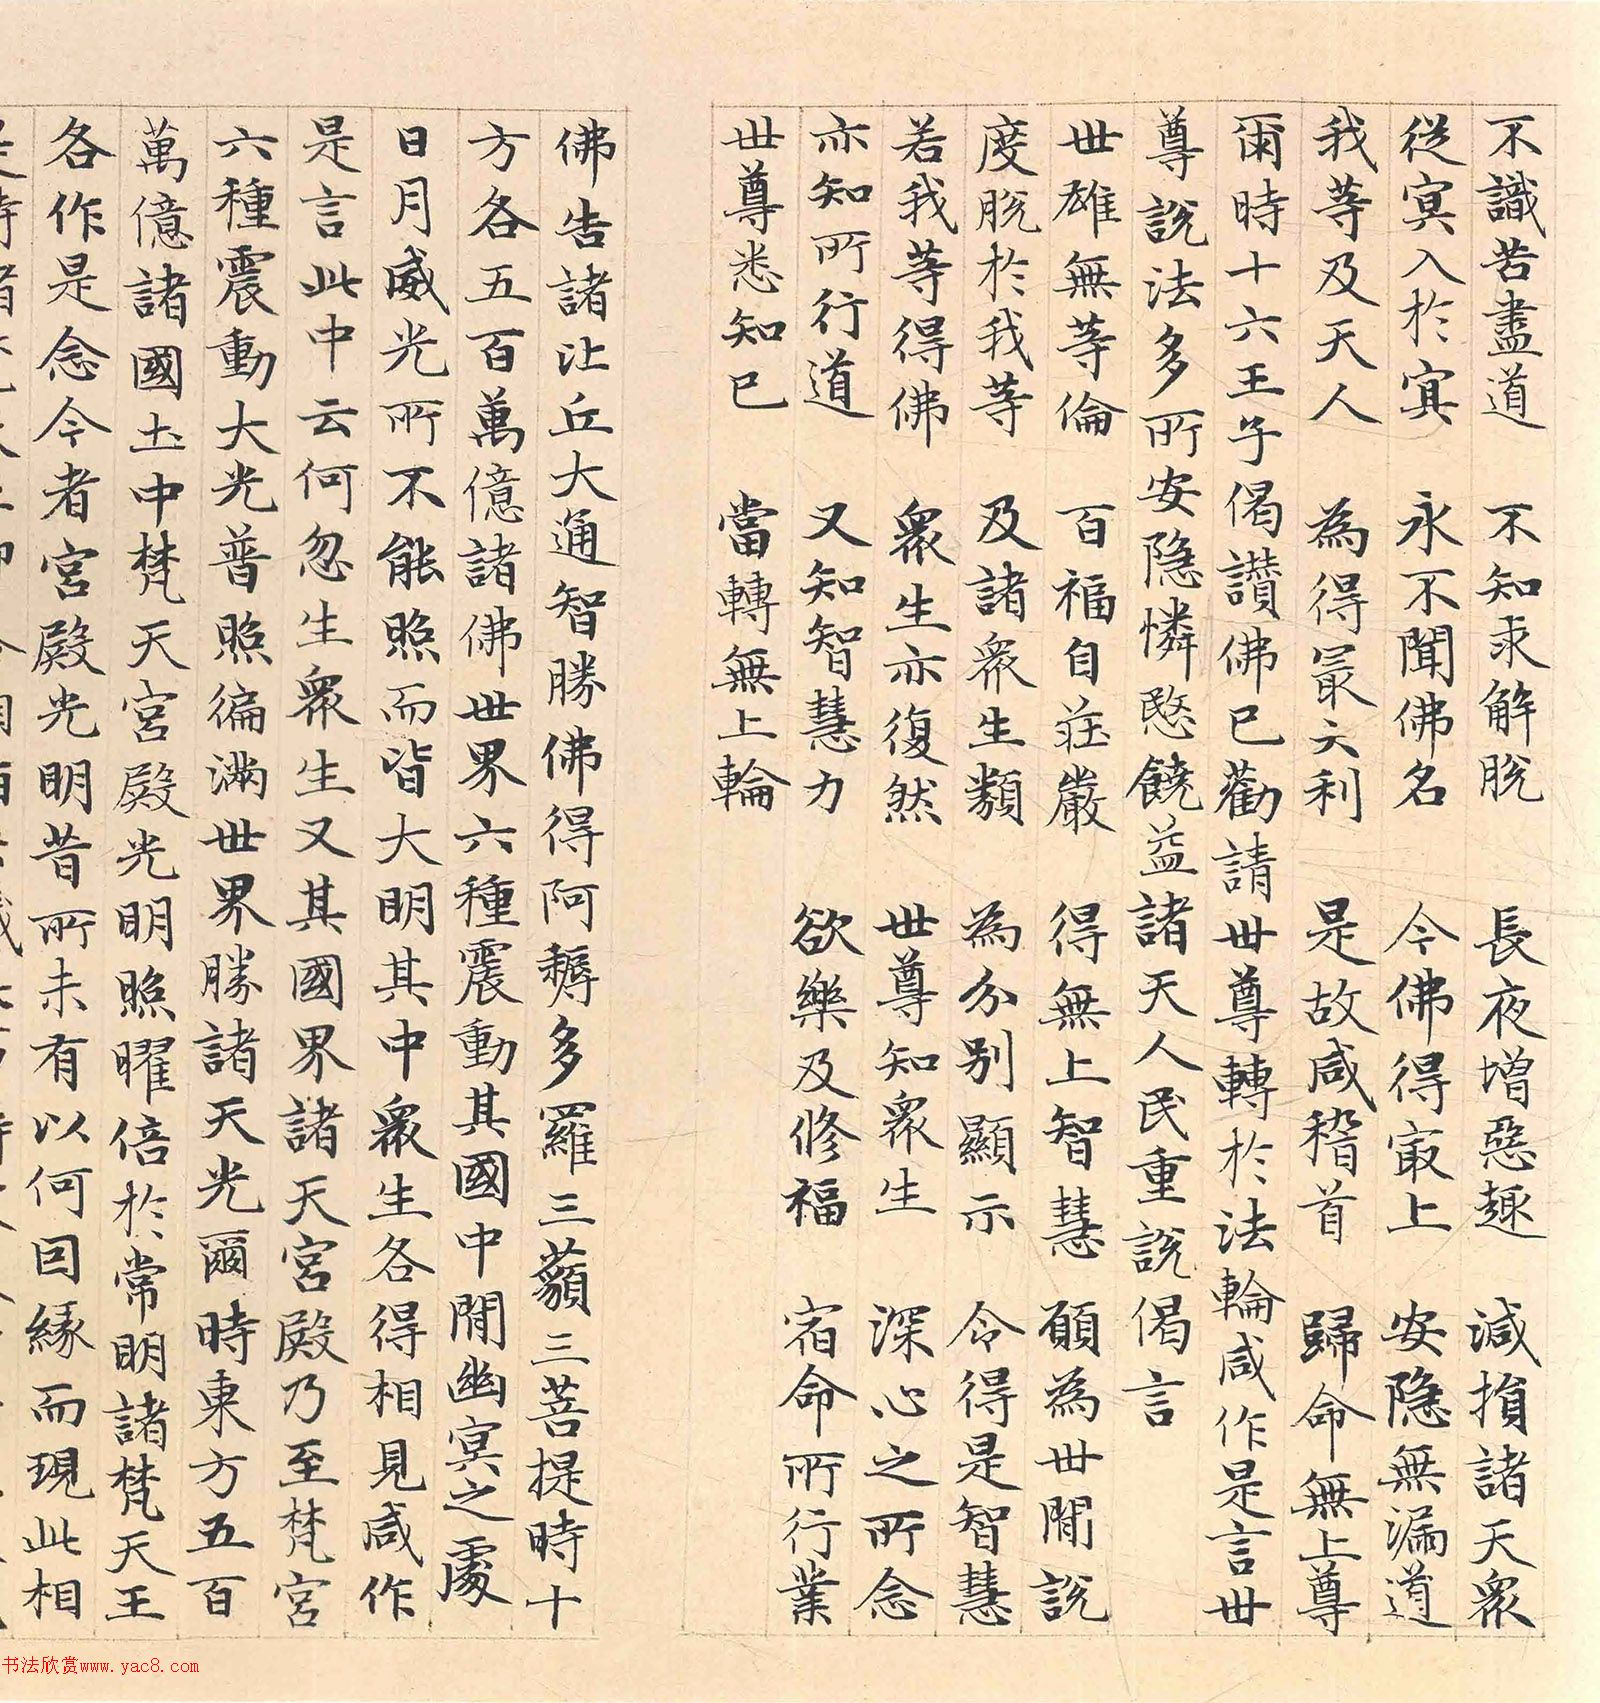 不識苦盡道　不知求解脫　長夜增惡趣　減損諸天眾
從冥入於冥　永不聞佛名　今佛得最上　安隱無漏道
我等及天人　為得最大利　是故咸稽首　歸命無上尊
爾時十六王子偈讚佛已勸請世尊轉於法輪咸作是言世
尊說法多所安隱憐愍饒益諸天人民重說偈言
世雄無等倫　百福自莊嚴　得無上智慧　願為世間說
度脫於我等　及諸眾生類　為分別顯示　令得是智慧
若我等得佛　眾生亦復然　世尊知眾生　深心之所念
亦知所行道　又知智慧力　欲樂及修福　宿命所行業
世尊悉知已　當轉無上輪
佛告諸比丘大通智勝佛得阿耨多羅三藐三菩提時十
方各五百萬億諸佛世界六種震動其國中間幽冥之處
日月威光所不能照而皆大明其中眾生各得相見咸作
是言此中云何忽生眾生又其國界諸天宮殿乃至梵宮
六種震動大光普照徧滿世界勝諸天光爾時東方五百
萬億諸國土中梵天宮殿光明照曜倍於常明諸梵天王
各作是念今者宮殿光明昔所未有以何因緣而現此相
书法欣赏www.yac8.com